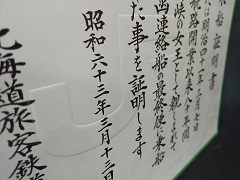 乗船証明書
航路開業以来八十年間
峡の女王として親しまれて
函連絡船の最終便に乗船
た事を証明します
昭和六十三年三月十三日
北海道旅客鉄